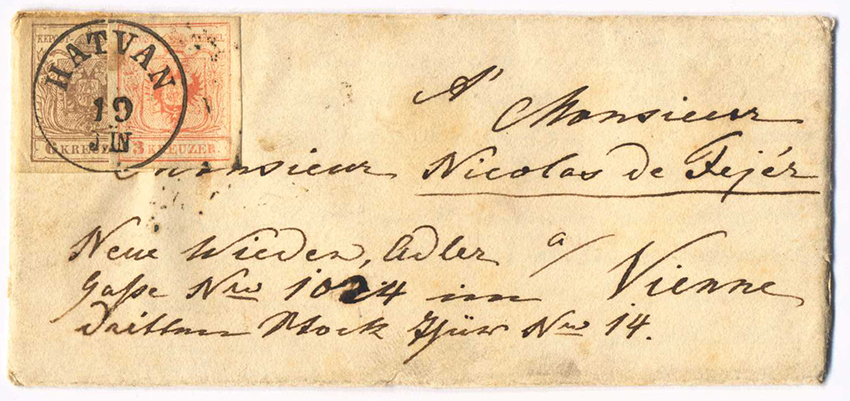 HATVAN
19
JUN
6 KREUZE
3 KREUZER.
A'
Monsieur
Monsieur Nicolas de Fejér
Neue Wieden, Adler a/
Gaße Nro 1024 im Vienne
Dritten Stock Thür Nro 14.